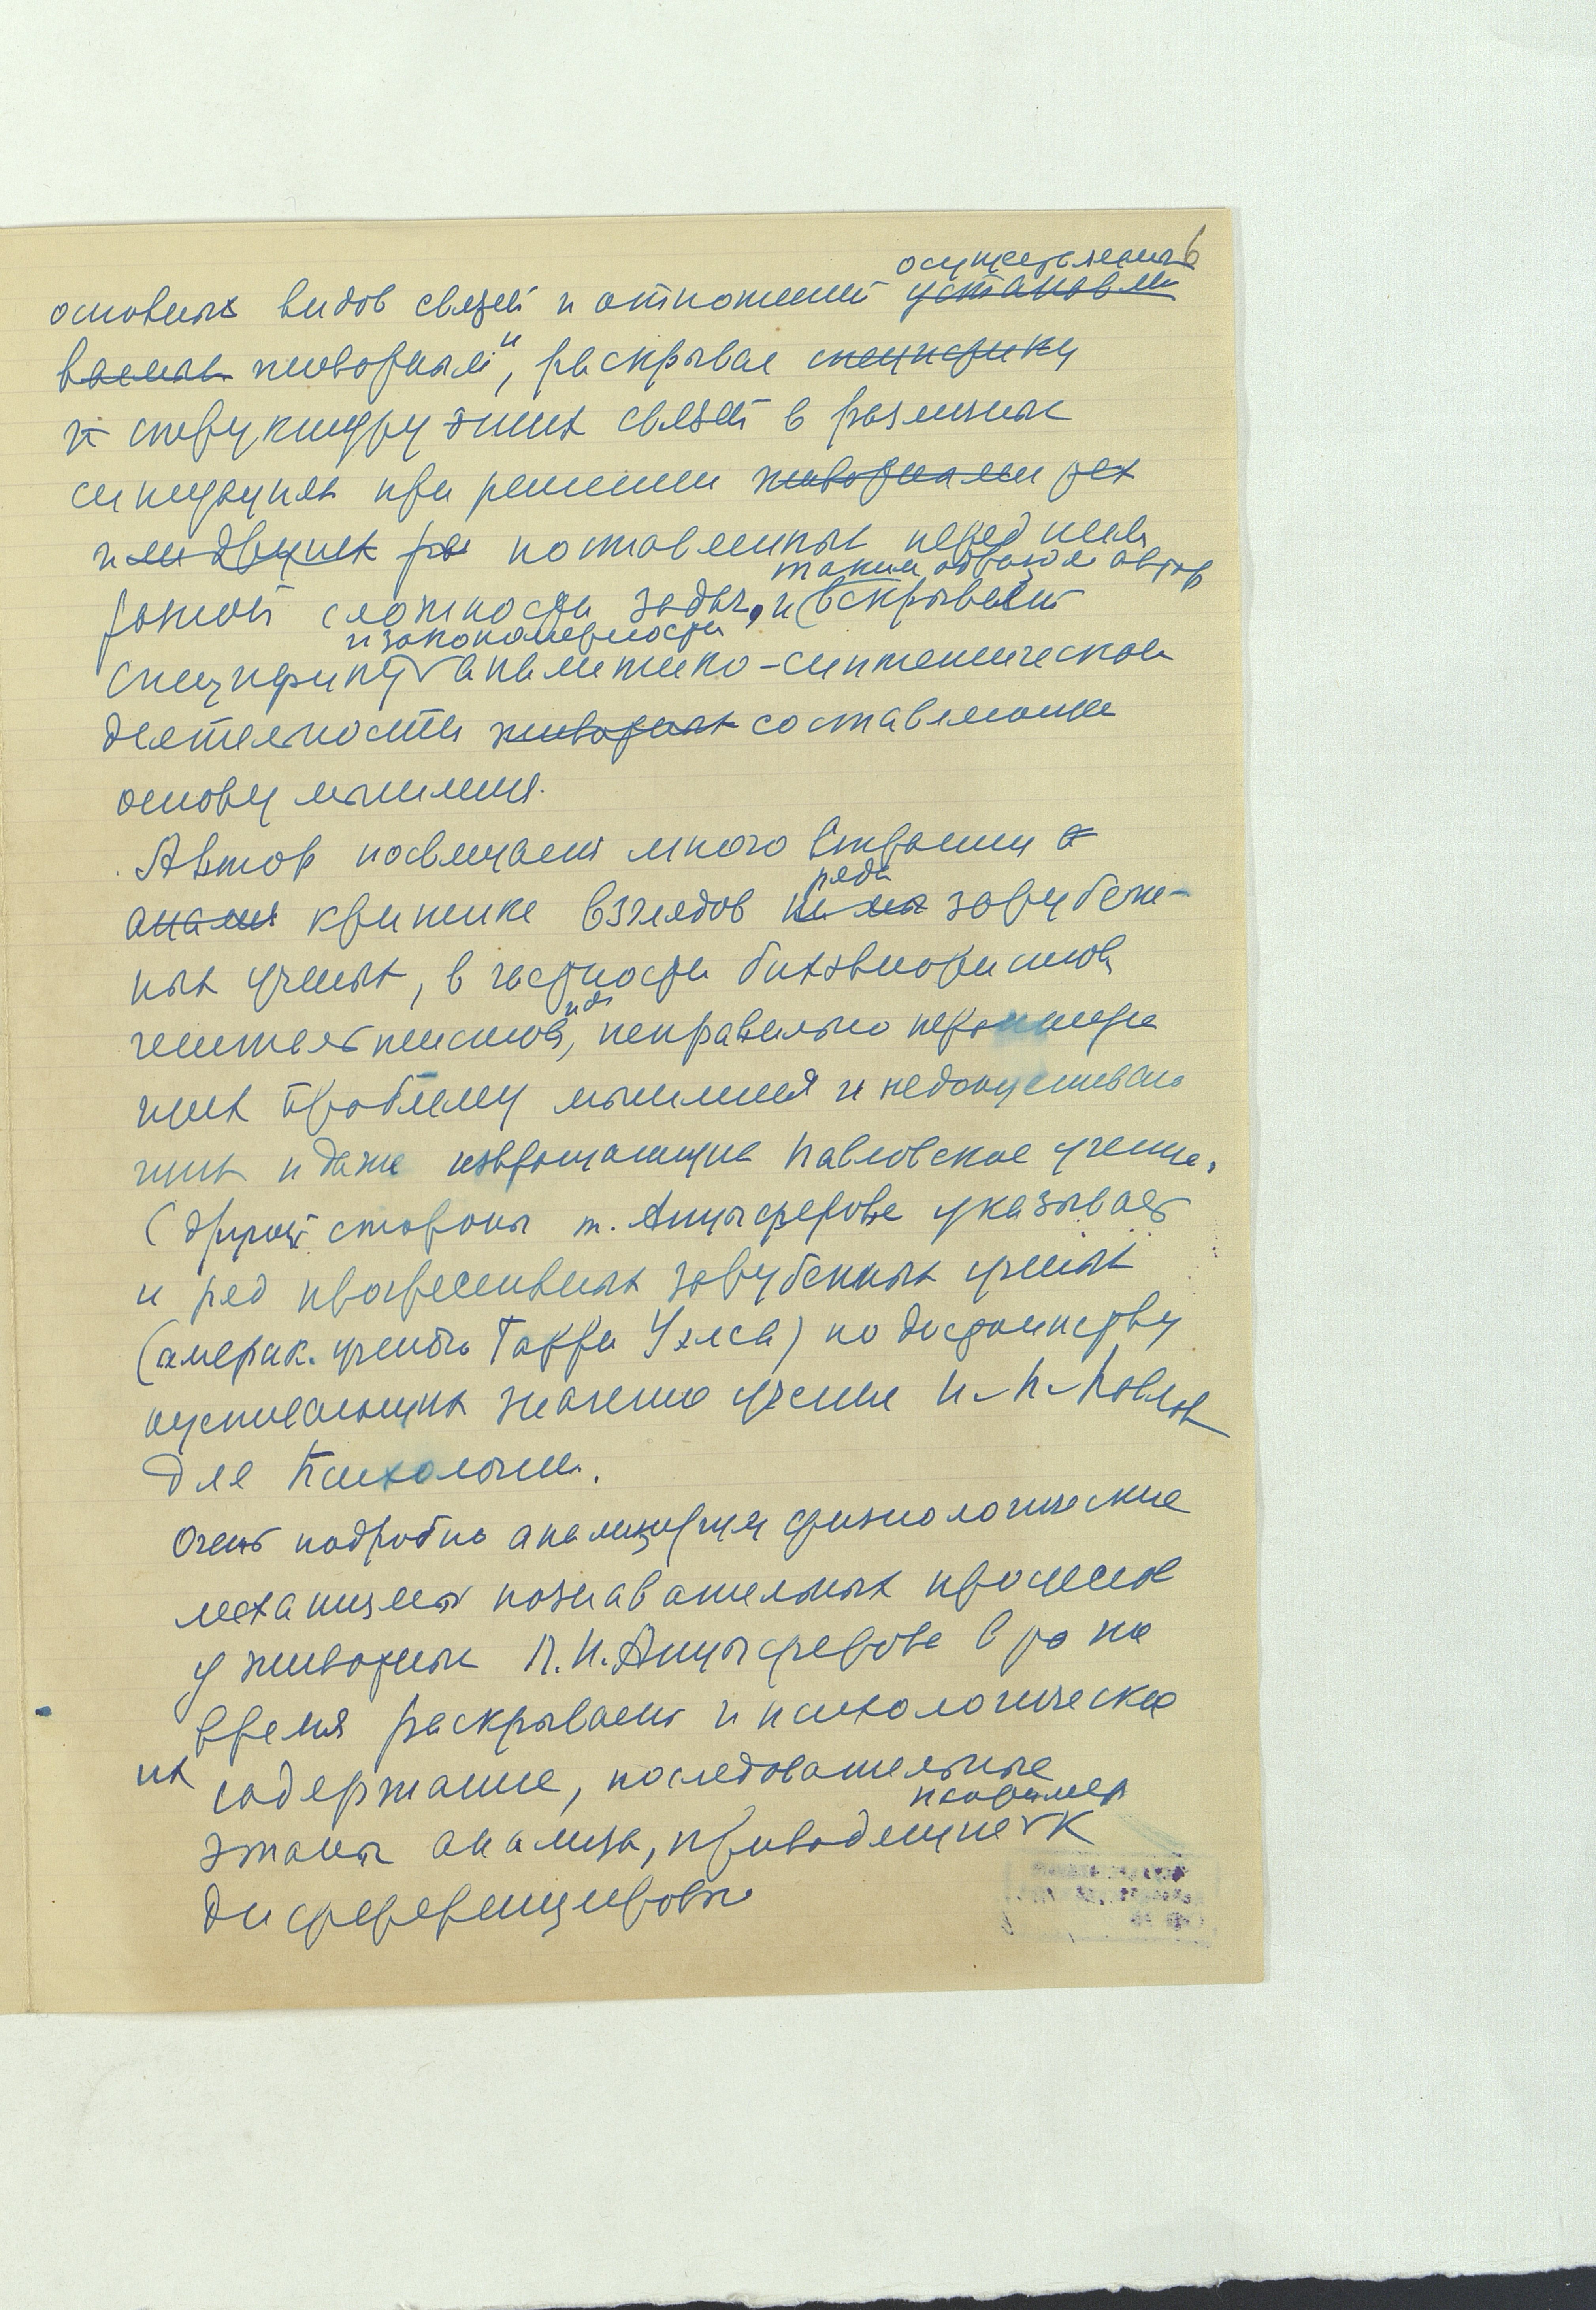 6
осуществленных
основных видов связей и отношений установли
ваемых животными, раскрывая специфику
и структуру этих связей в различных
ситуациях при решении животными рех
поставленных перед ними
таким образом автор
разной сложности задач, и вскрывает
и закономерности
специфику аналитико-синтетической
деятельности животных составляющие
основу мышления.
Автор посвящает много страниц а
ряда
анализ критике взглядов зарубеж-
ных ученых, в частности бихевиористов
гештальтистов, неправильно
щих проблему мышления и недооцениваю
щих и даже извращающих павловское учение.
С другой стороны т. Анцыферова указывает
и ряд прогрессивных зарубежных ученых
(америк. ученого Гарри Уэлса) по достоинству
оценивающих значение учения И. П. Павлов
для психологии.
Очень подробно анализируя физиологические
механизмы познавательных процессов
у животных Л.И. Анцыферова в то же
время раскрывает и психологическое
их содержание, последовательные
например
этапы анализа, приводящие к
дифференцировке